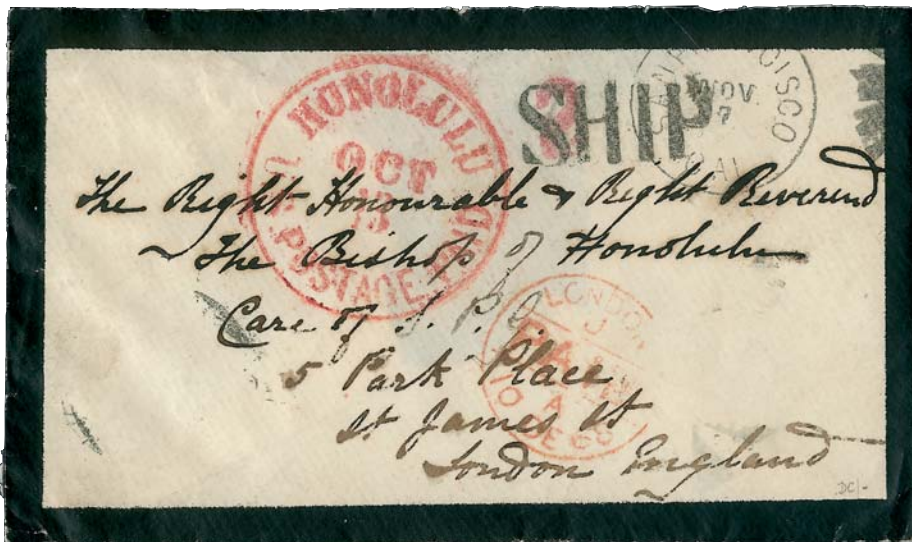 HONOLULU
OCT
U.S. POSTAGE PAID
SHIP
SAN FRANCISCO
NOV
7
CAL
The Right Honourable & Right Reverend
The Bishop of Honolulu
Care of S. P. G
5 Park Place
St James St
London England
LONDON
PAID
A
10 DE 65
DC/-